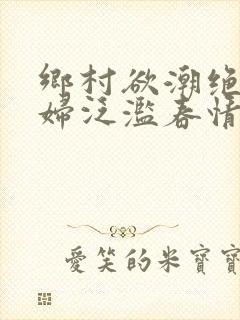 鄉村欲潮绝
婦泛濫春情
愛笑的米寶寶